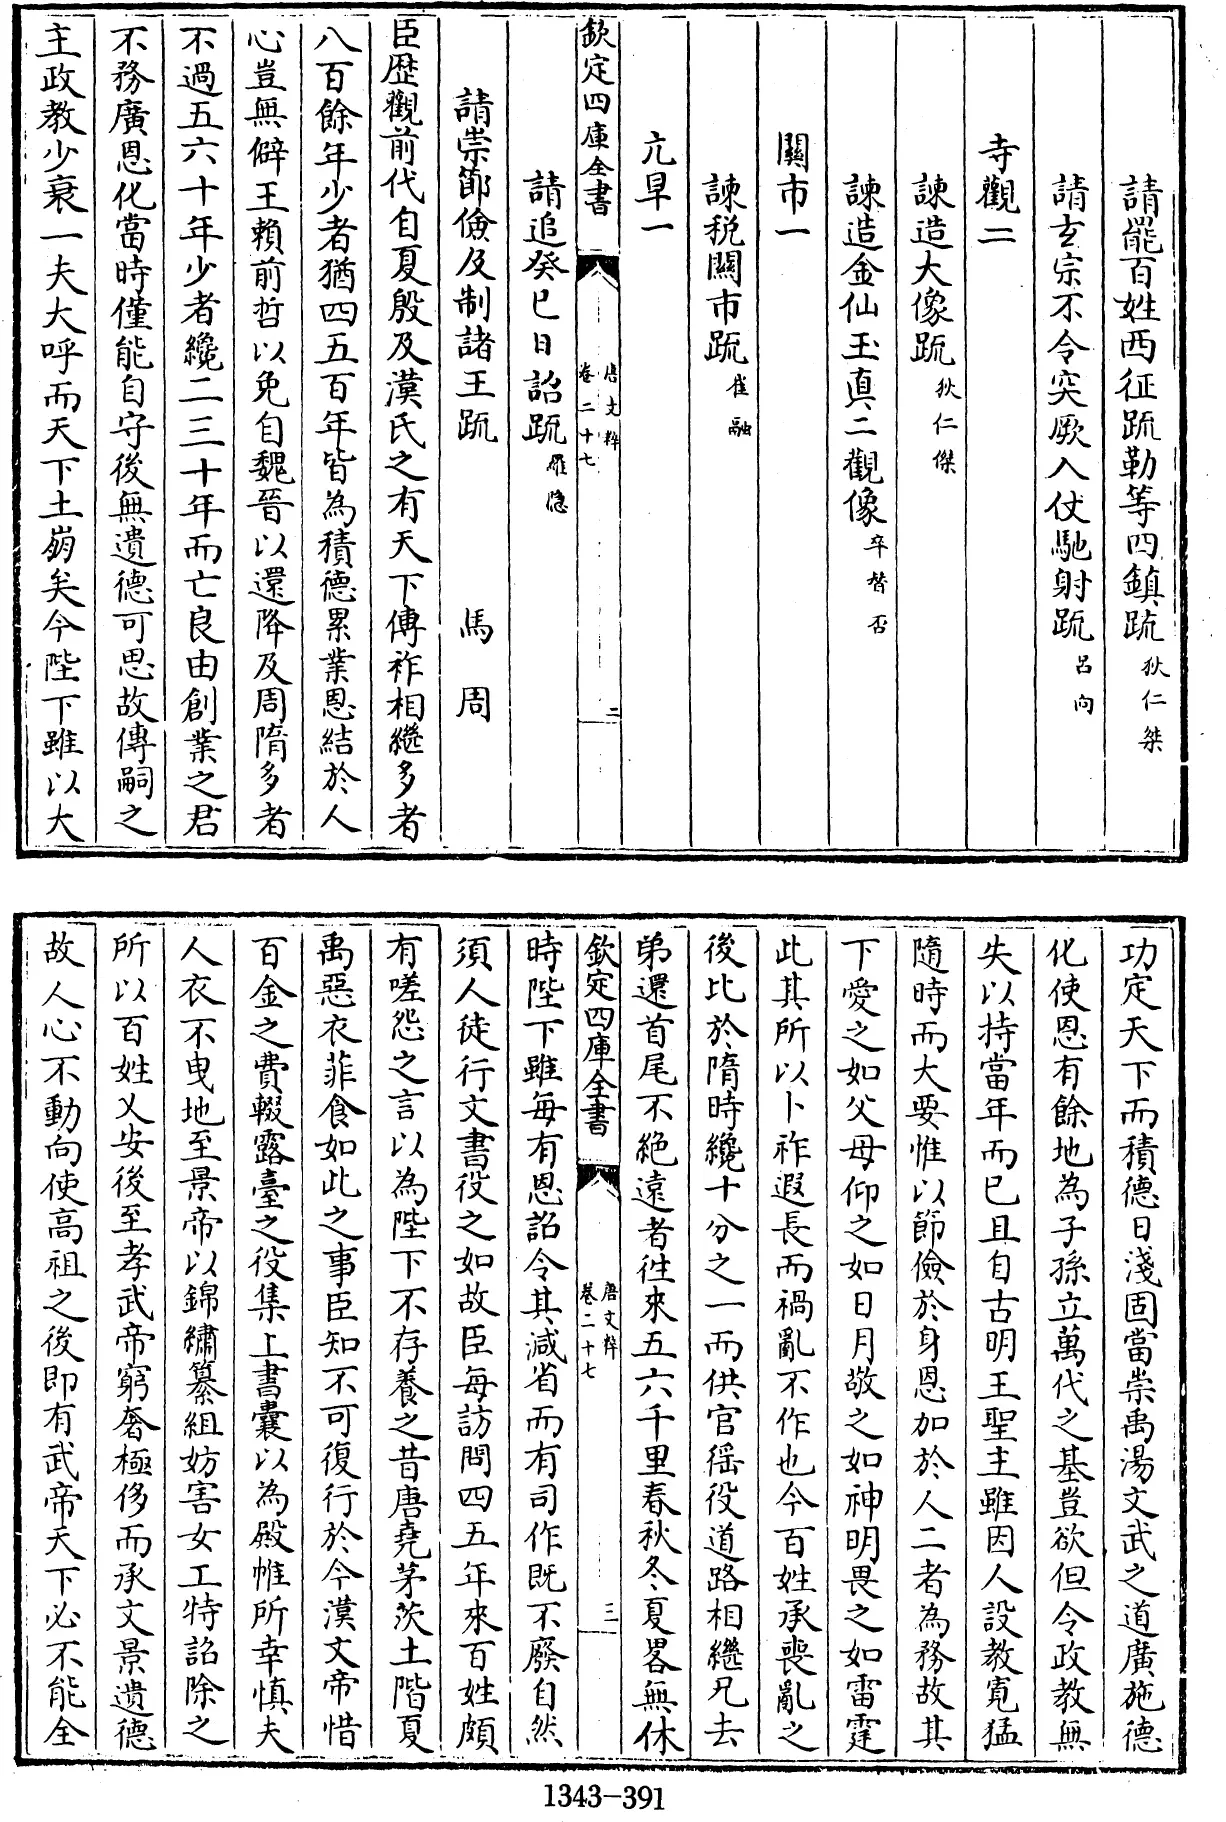 請罷百姓西征疏勒等四鎮疏 狄仁桀
請玄宗不令突厥入仗馳射疏 呂向
寺觀二
諫造大像疏 狄仁傑
諫造金仙玉真二觀像 卒替否
關市一
諫税關市疏 崔融
亢旱一
欽定四庫全書
唐文粹
卷二十七
二
請追癸巳日詔疏 羅隐
請崇節儉及制諸王疏 馬周
臣歴觀前代自夏殷及漢氏之有天下傳祚相繼多者
八百餘年少者猶四五百年皆為積德累業恩結於人
心豈無僻王賴前哲以免自魏晉以還降及周隋多者
不過五六十年少者纔二三十年而亡良由創業之君
不務廣恩化當時僅能自守後無遺德可思故傳嗣之
主政教少衰一夫大呼而天下土崩矣今陛下雖以大
功定天下而積德日淺固當崇禹湯文武之道廣施德
化使恩有餘地為子孫立萬代之基豈欲但令政教無
失以持當年而已且自古明王聖主雖因人設教寛猛
隨時而大要惟以節儉於身恩加於人二者為務故其
下愛之如父母仰之如日月敬之如神明畏之如雷霆
此其所以卜祚遐長而禍亂不作也今百姓承喪亂之
後比於隋時纔十分之一而供官徭役道路相繼兄去
弟還首尾不絶遠者往來五六千里春秋冬夏畧無休
欽定四庫全書
唐文粹
卷二十七
三
時陛下雖每有恩詔令其減省而有司作既不廢自然
須人徒行文書役之如故臣每訪問四五年來百姓頗
有嗟怨之言以為陛下不存養之昔唐堯茅茨土階夏
禹惡衣菲食如此之事臣知不可復行於今漢文帝惜
百金之費輟露臺之役集上書囊以為殿帷所幸慎夫
人衣不曳地至景帝以錦繡纂組妨害女工特詔除之
所以百姓乂安後至孝武帝窮奢極侈而承文景遺德
故人心不動向使高祖之後即有武帝天下必不能全
1343-391